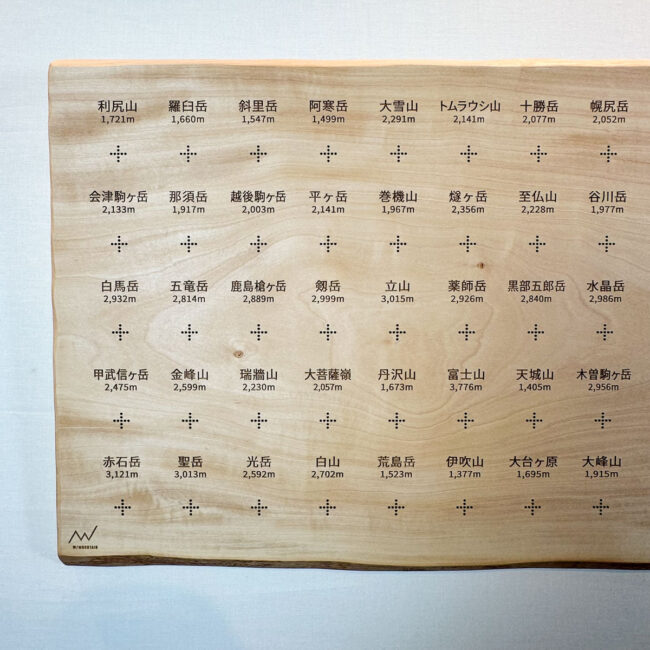 利尻山 羅臼岳 斜里岳 阿寒岳 大雪山 トムラウシ山 十勝岳 幌尻岳
1,721m 1,660m 1,547m 1,499m 2,291m 2,141m 2,077m 2,052m
会津駒ヶ岳 那須岳 越後駒ヶ岳 平ヶ岳 巻機山 燧ヶ岳 至仏山 谷川岳
2,133m 1,917m 2,003m 2,141m 1,967m 2,356m 2,228m 1,977m
白馬岳 五竜岳 鹿島槍ヶ岳 剱岳 立山 薬師岳 黒部五郎岳 水晶岳
2,932m 2,814m 2,889m 2,999m 3,015m 2,926m 2,840m 2,986m
甲武信ヶ岳 金峰山 瑞牆山 大菩薩嶺 丹沢山 富士山 天城山 木曽駒ヶ岳
2,475m 2,599m 2,230m 2,057m 1,673m 3,776m 1,405m 2,956m
赤石岳 聖岳 光岳 白山 荒島岳 伊吹山 大台ヶ原 大峰山
3,121m 3,013m 2,592m 2,702m 1,523m 1,377m 1,695m 1,915m